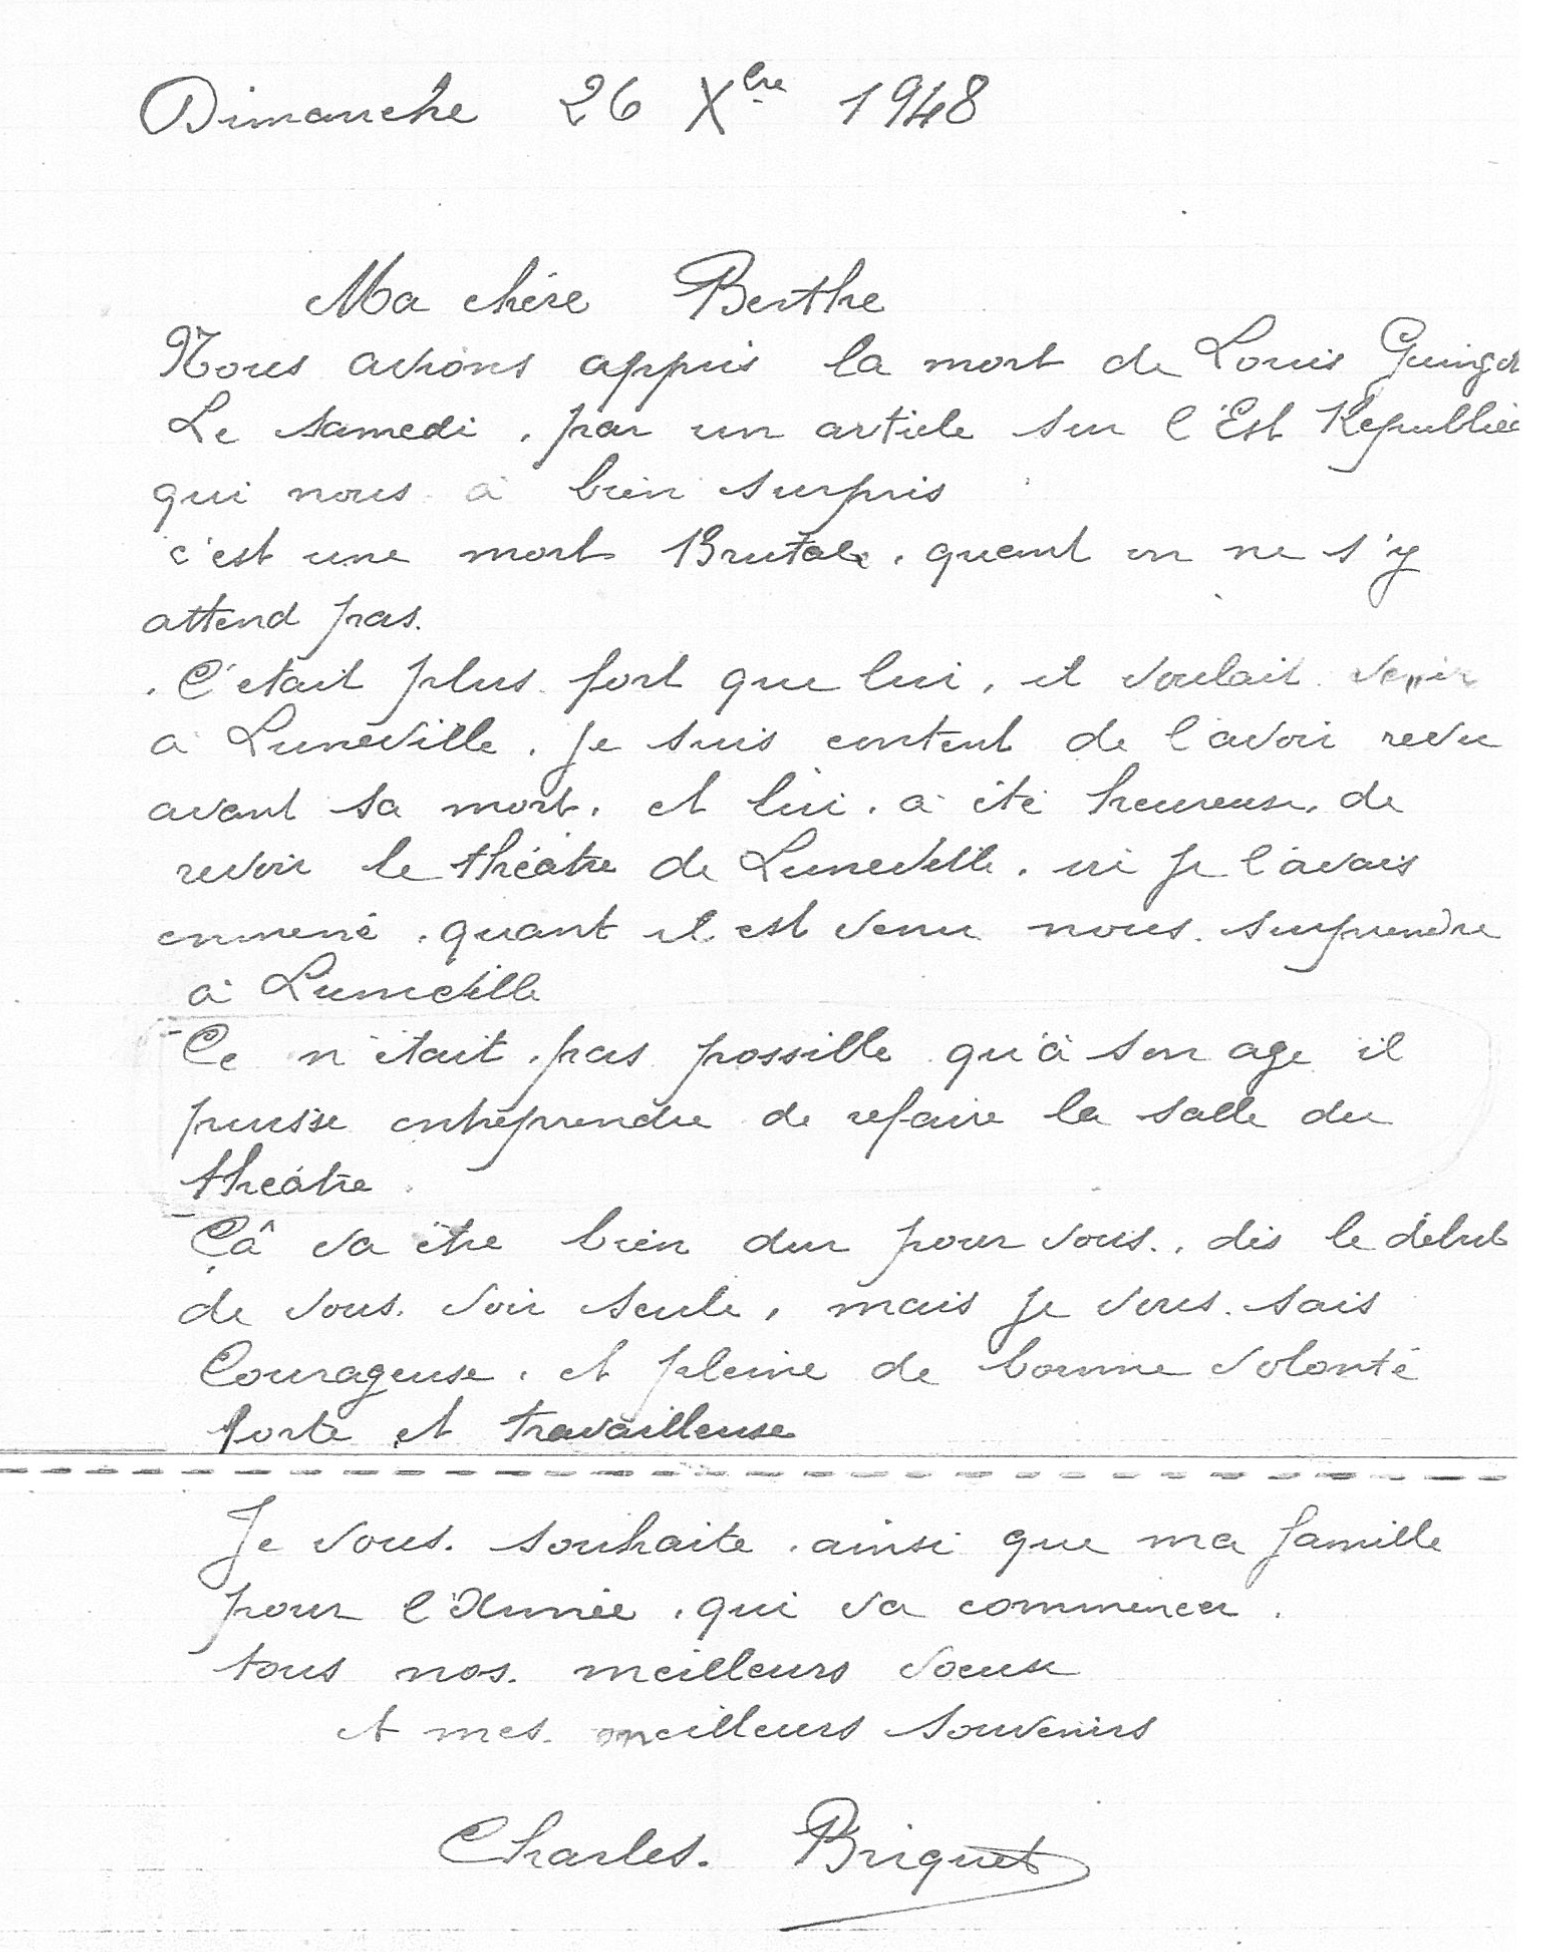 Dimanche 26 Xbre 1948
Ma chère Berthe
Nous avions appris la mort de Louis Guingot
Le samedi, par un article sur l'Est Républic
qui nous à bien surpris
c'est une mort Brutale, quant on ne s'y
attend pas.
. C'était plus fort que lui, il voulait venir
à Luneville. Je suis content de l'avoir revu
avant sa mort, et lui, a été heureux, de
revoir le théâtre de Luneville. où je l'avais
emmené, quant il est venu nous surprendre
à Luneville
Ce n'était pas possible qu'à son age il
puisse entreprendre de refaire la salle du
théâtre.
Çâ va être bien dur pour vous., dès le début
de vous voir seule, mais je vous sais
Courageuse, et pleine de bonne volonté
forte et travailleuse
Je vous souhaite, ainsi que ma famille
pour l'Année, qui va commencer.
tous nos meilleurs voeux
et mes meilleurs souvenirs
Charles. Briquet